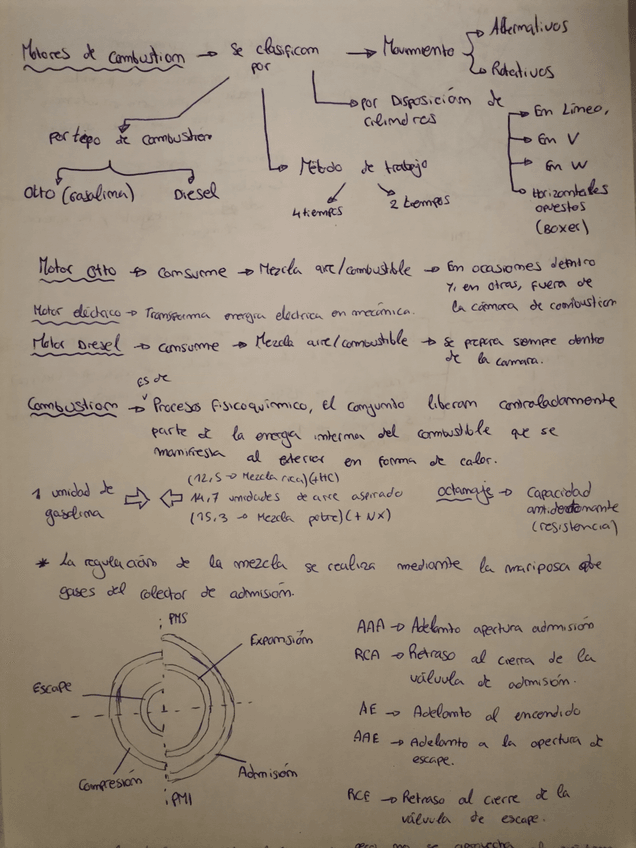 Motores de Combustion → Se clasifican por → Movimiento
Alternativos
Rotativos
por Disposición de cilindros
En Linea,
En V
En W
Horizontales opuestos (Boxer)
Por tipo de combustion
Otto (Gasolina)
Diesel
Método de trabajo
4 tiempos
2 tiempos
Motor Otto → consume → Mezcla aire/combustible → En ocasiones dentro
y, en otras, fuera de
la cámara de combustion
Motor eléctrico → Transforma energia electrica en mecánica.
Motor Diesel → consume → Mezcla aire/combustible → se prepara siempre dentro
de la camara.
es de
Combustion → Procesos fisicoquimico, el conjunto liberan controladamente
parte de la energia interna del combustible que se
manifiesta al exterior en forma de calor.
(12,5 → Mezcla rica)(+HC)
1 unidad de gasolina ⇨ ⇦ 14,7 unidades de aire aspirado
(15,3 → Mezcla pobre)(+NX)
octanaje → Capacidad
antidetonante
(resistencia)
* La regulación de la mezcla se realiza mediante la mariposa de
gases del colector de admisión.
PMS
Expansión
Escape
Compresión
Admisión
PMI
AAA → Adelanto apertura admisión
RCA → Retraso al cierra de la
válvula de admisión.
AE → Adelanto al encendido
AAE → Adelanto a la apertura de
escape.
RCE → Retraso al cierre de la
válvula de escape.